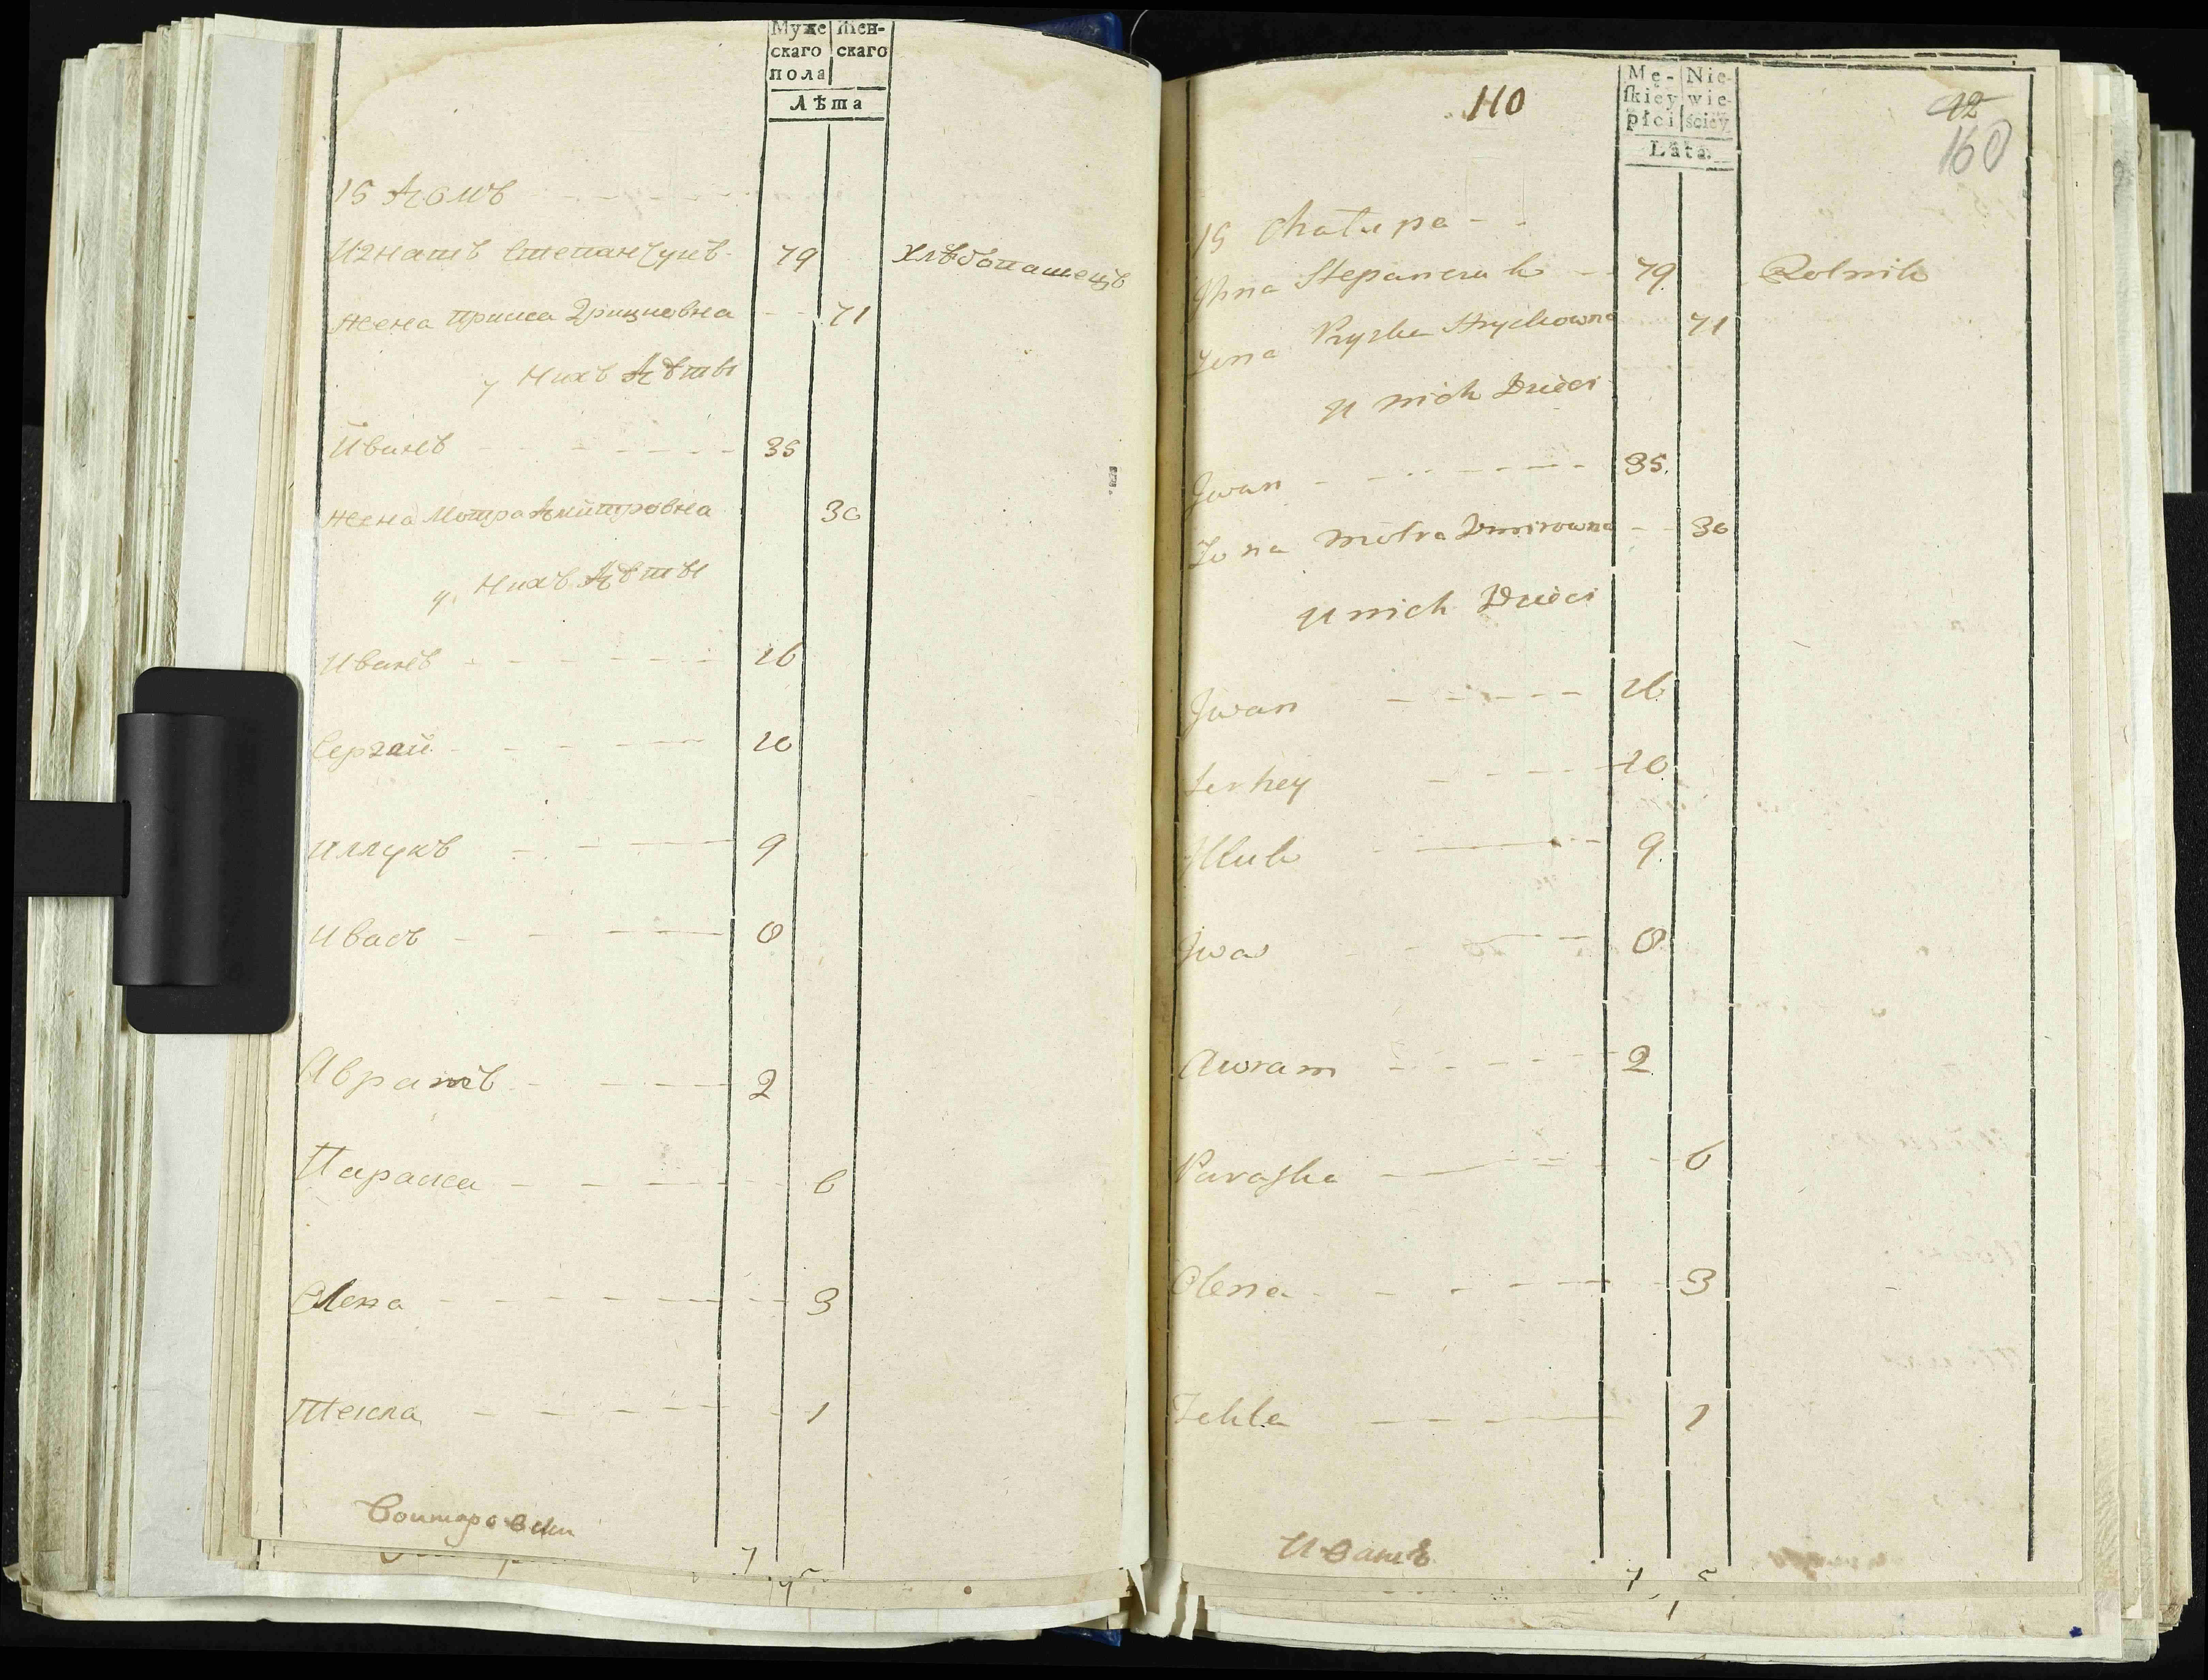 Муже Жен-
скаго скаго
пола
Лѣта
15 Домъ
Игнатъ Степанчукъ 79 Хлѣбопашецъ
Жена Приска Грицковна 71
у Нихъ Дѣты
Иванъ 35
Жена Мотра Дмитровна 30
у Нихъ Дѣты
Иванъ 16
Сергей 10
Иллукъ 9
Ивасъ 8
Аврамъ 2
Параска 6
Олена 3
Текла 1
7
110
Mę- Nie-
ſkiey wie-
płci ściey
Lata.
12
160
15 Chałupa
Ihna Stepanczuk 79 Rolnik
Żona Pryska Hrychowna 71
u nich Dzieci
Jwan 35.
Żona Motra Dmirowna 30
u nich Dzieci
Jwan 16
Serhey 10
Illuk 9.
Jwas 8
Awram 2
Paraſka 6
Olena 3
Tekla 1
Иванъ
7 5